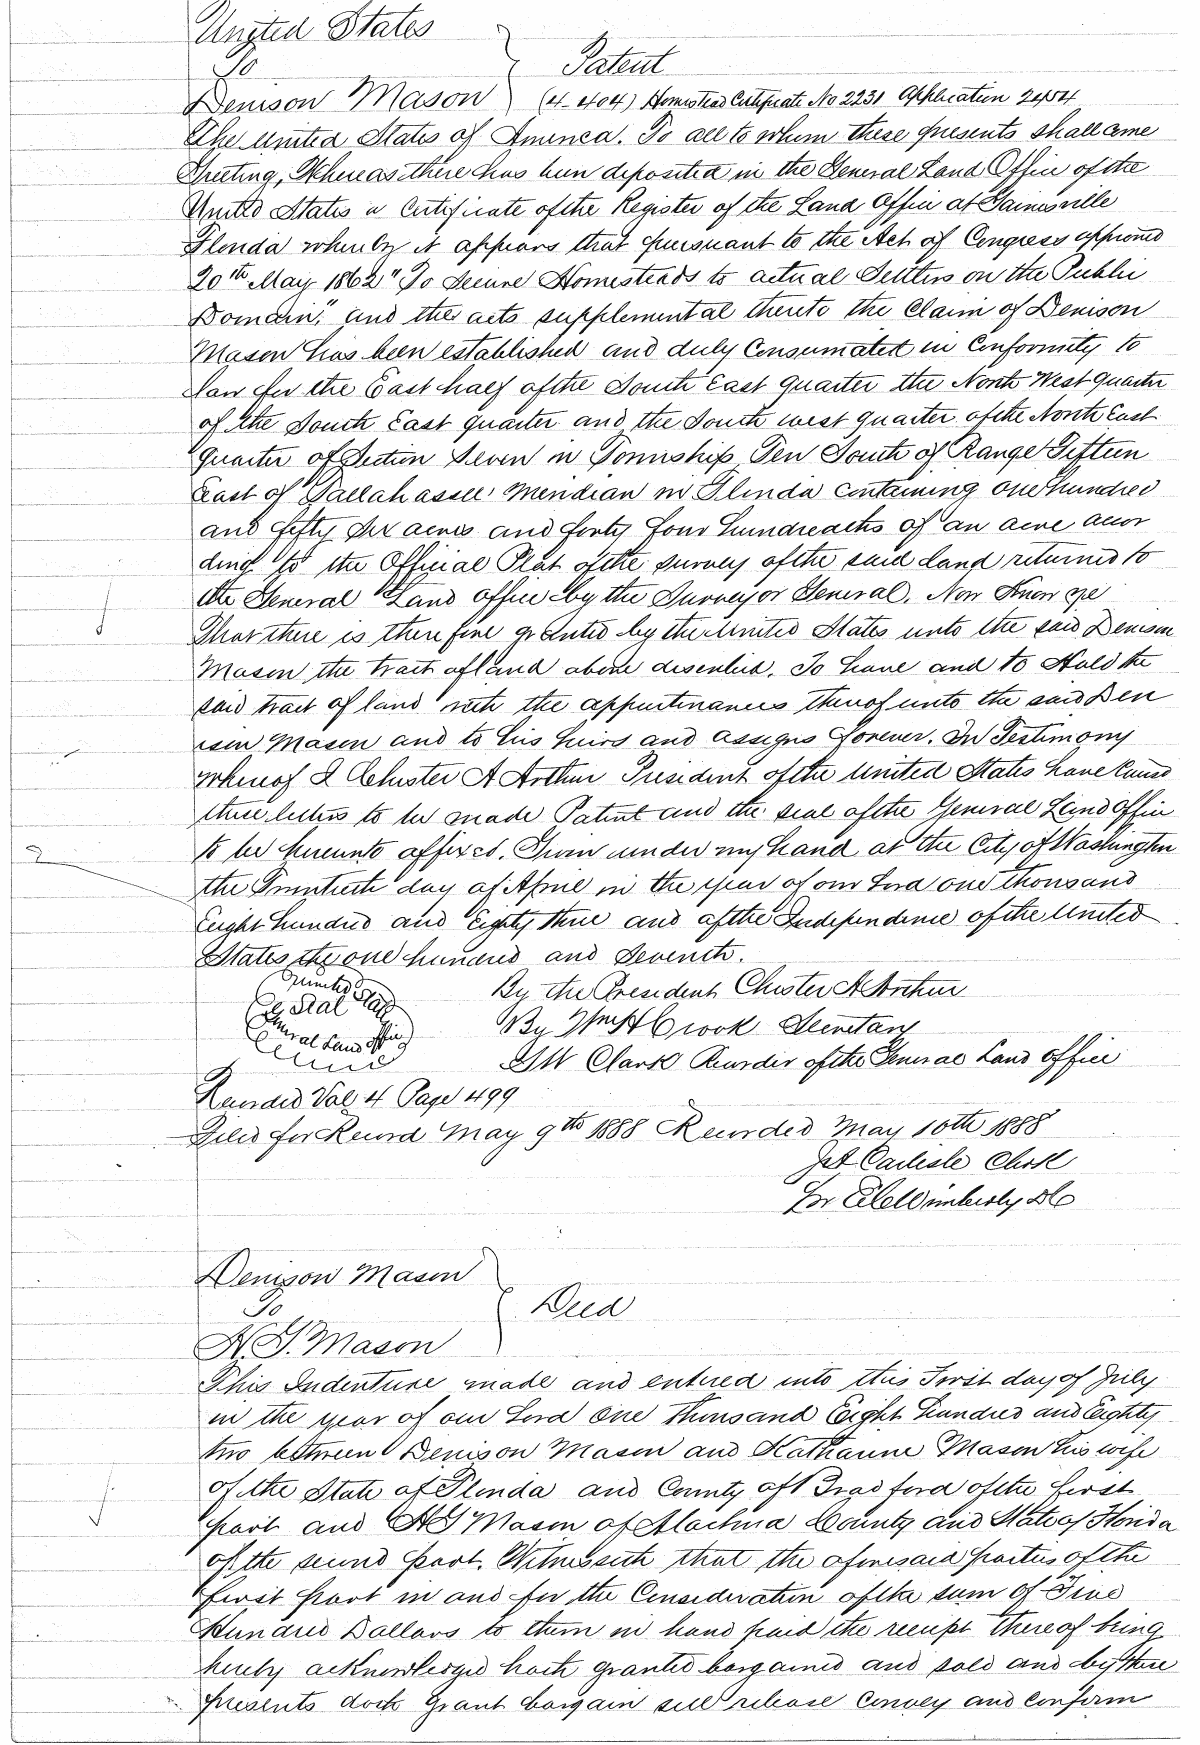 United States
To
Patent
Denison Mason (4-404) Homestead Certificate No 2231 Application 2454
The United States of America. To all to whom these presents shall come
Greeting, Whereas there has been deposited in the General Land Office of the
United States a Certificate of the Register of the Land Office at Gainesville
Florida whereby it appears that pursuant to the Act of Congress approved
20th May 1862 "To Secure Homesteads to actual Settlers on the Public
Domain", and the acts supplemental thereto the Claim of Denison
Mason has been established and duly Consumated in Conformity to
law for the East half of the South East quarter the North West quarter
of the South East quarter and the South west quarter of the North East
quarter of Section Seven in Township Ten South of Range Fifteen
East of Tallahassee Meridian in Florida containing one hundred
and fifty six acres and forty four hundreadths of an acre accor
ding to the Official Plat of the survey of the said land returned to
the General Land office by the Surveyor General. Now Know ye
That there is therefore granted by the United States unto the said Denison
Mason the tract of land above described. To have and to Hold the
said tract of land with the appurtinances thereof unto the said Den
ison Mason and to his heirs and assigns forever. In Testimony
whereof I Chester A Arthur President of the United States have caused
these letters to be made Patent and the seal of the General Land Office
to be hereunto affixed. Given under my hand at the City of Washington
the Twentieth day of April in the year of our Lord one thousand
Eight hundred and Eighty three and of the Independence of the United
States the one hundred and Seventh.
United
Seal States
General Land Office
By the President Chester A Arthur
By Wm H Crook Secretary
SW Clark Recorder of the General Land office
Recorded Vol 4 Page 499
Filed for Record May 9th 1888 Recorded May 10th 1888
Carlisle Clerk
Wimberly DC
Denison Mason
To
Deed
H. G. Mason
This Indenture made and entered into this First day of July
in the year of our Lord One Thousand Eight hundred and Eighty
two between Denison Mason and Katharine Mason his wife
of the State of Florida and County of Bradford of the first
part and HG Mason of Alachua County and State of Florida
of the second part. Witnesseth that the aforesaid parties of the
first part in and for the Consideration of the sum of Five
Hundred Dollars to them in hand paid the receipt thereof being
hereby acknowledged hath granted bargained and sold and by these
presents doth Grant bargain sell release Convey and Confirm